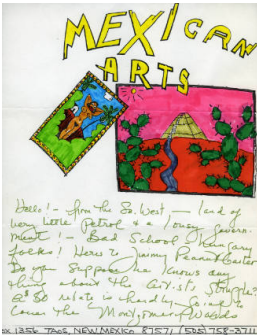 MEXICAN
ARTS
Hello! - from the So. West - land of
very little petrol & a lousy govern-
ment! Bad School & hungry
folks! Here's Jimmy Peanut Carter
Do you suppose he knows any
thing about the artists struggle?
relate is hardly going to
cover the
BOX 1356 TAOS, NEW MEXICO 87571 / (505) 758-3711